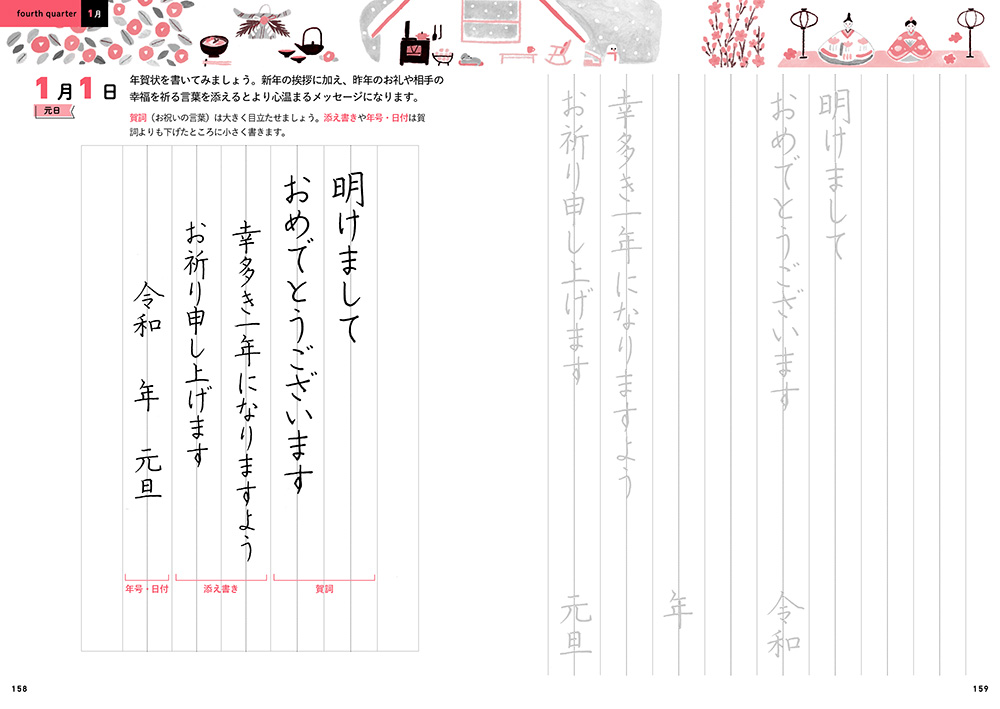 fourth quarter 1月
1月1日
元日
年賀状を書いてみましょう。新年の挨拶に加え、昨年のお礼や相手の
幸福を祈る言葉を添えるとより心温まるメッセージになります。
賀詞（お祝いの言葉）は大きく目立たせましょう。添え書きや年号・日付は賀
詞よりも下げたところに小さく書きます。
明けまして
おめでとうございます
幸多き一年になりますよう
お祈り申し上げます
令和 年 元旦
賀詞
添え書き
年号・日付
158
明けまして
おめでとうございます
幸多き一年になりますよう
お祈り申し上げます
令和
年
元旦
159